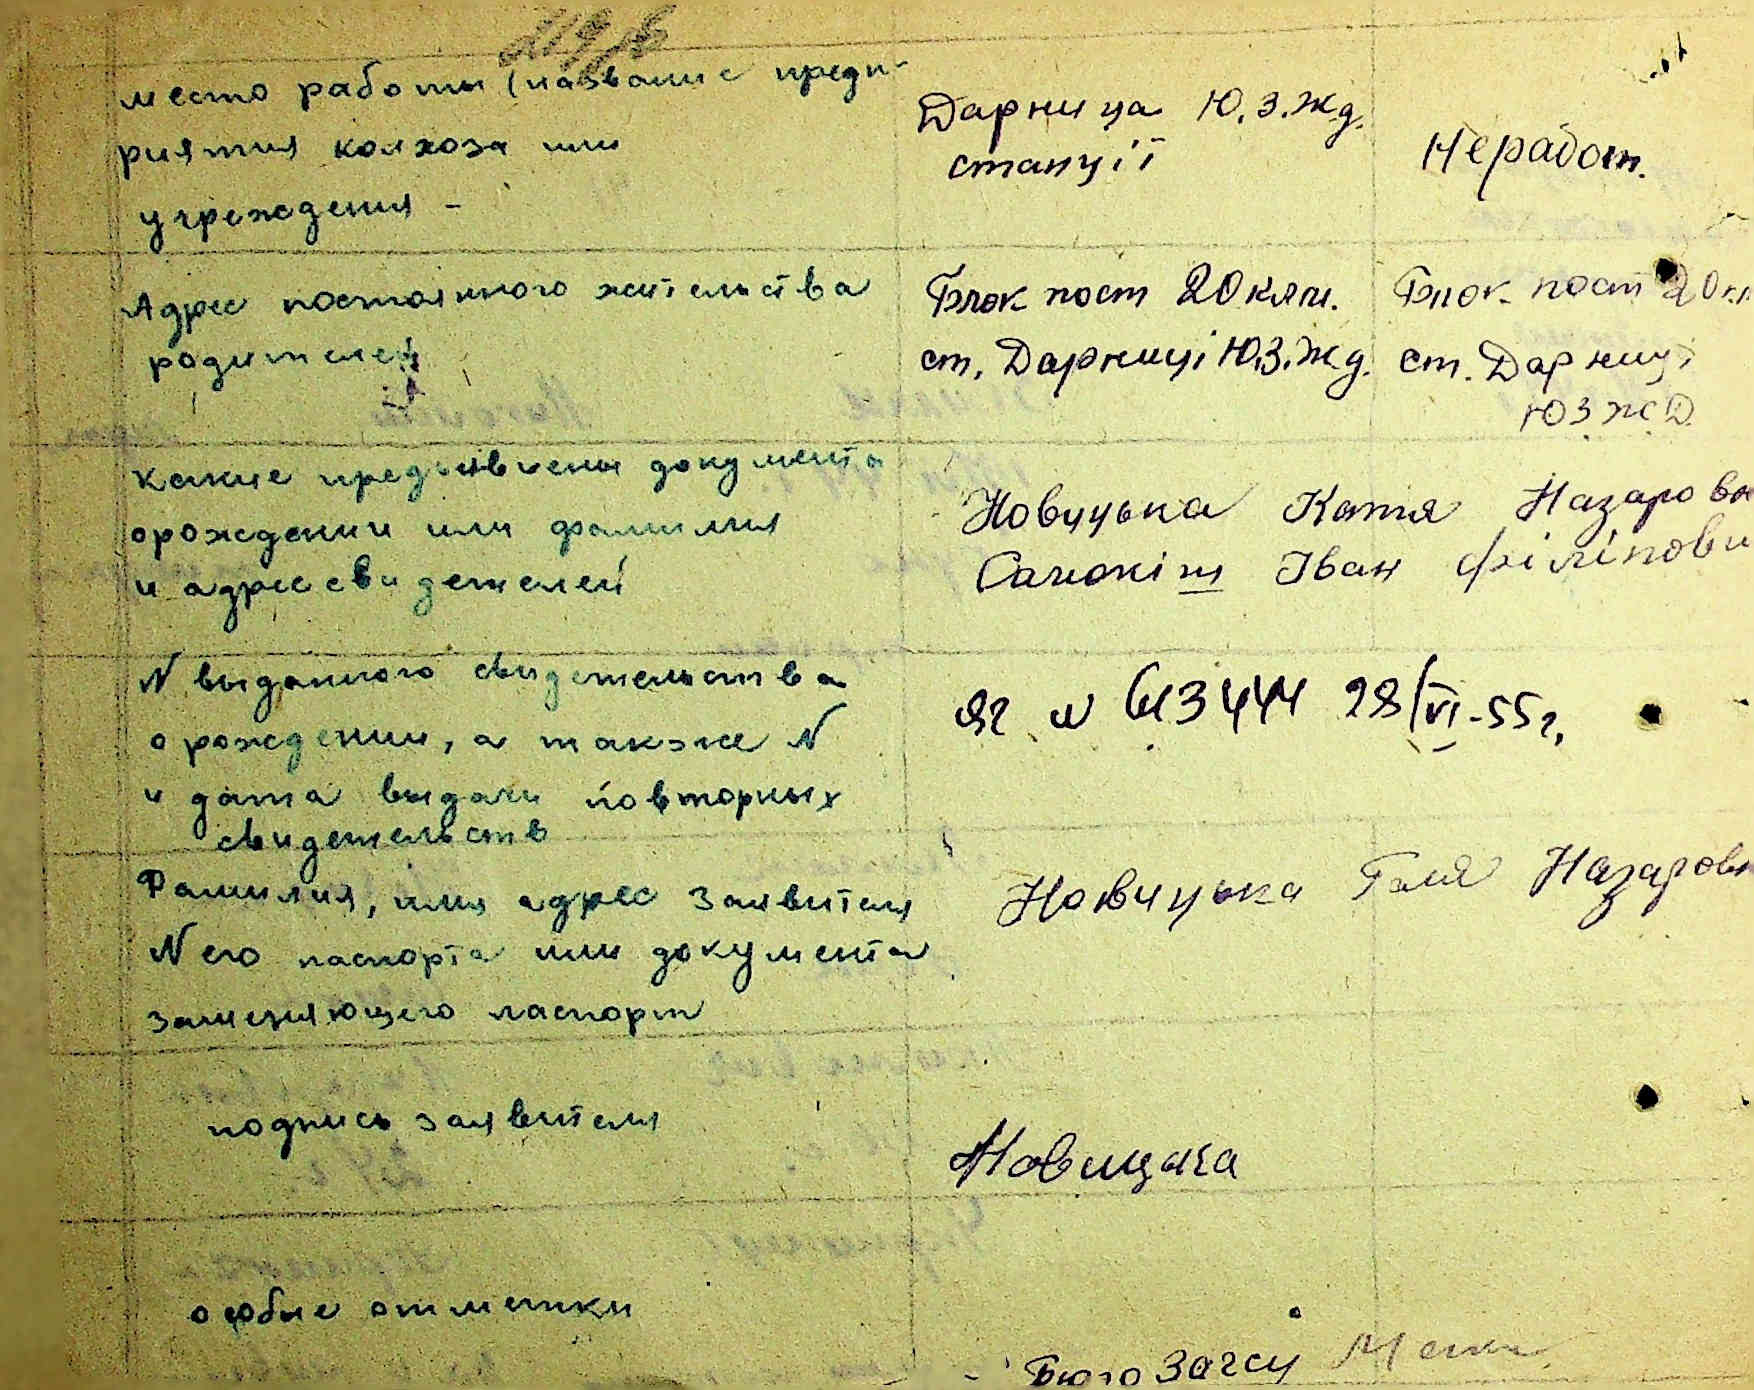 место работы (название предп-
риятия колхоза или
учреждения -
Дарница Ю.З.Ж.д.
станції
Неработ.
Адрес постоянного жительства
родителей
Блок пост 20 клм.
ст. Дарниці Ю.З.Ж.д.
Блок пост 20 к
ст. Дарниці
ЮЗЖД
Какие предъявлены документа
орождении или фамилия
и адрес свидетелей
Новицька Катя Назаровн
Іван Філіпови
N выданного свидетельства
о рождении, а также N
и дата выдачи повторных
свидетельств
N 28/VI-55г.
Фамилия, имя адрес заявителя
N его паспорта или документа
заменяющего паспорт
Новицька Галя Назаровн
подпись заявителя
Новицька
особые отметки
Бюро Загсу